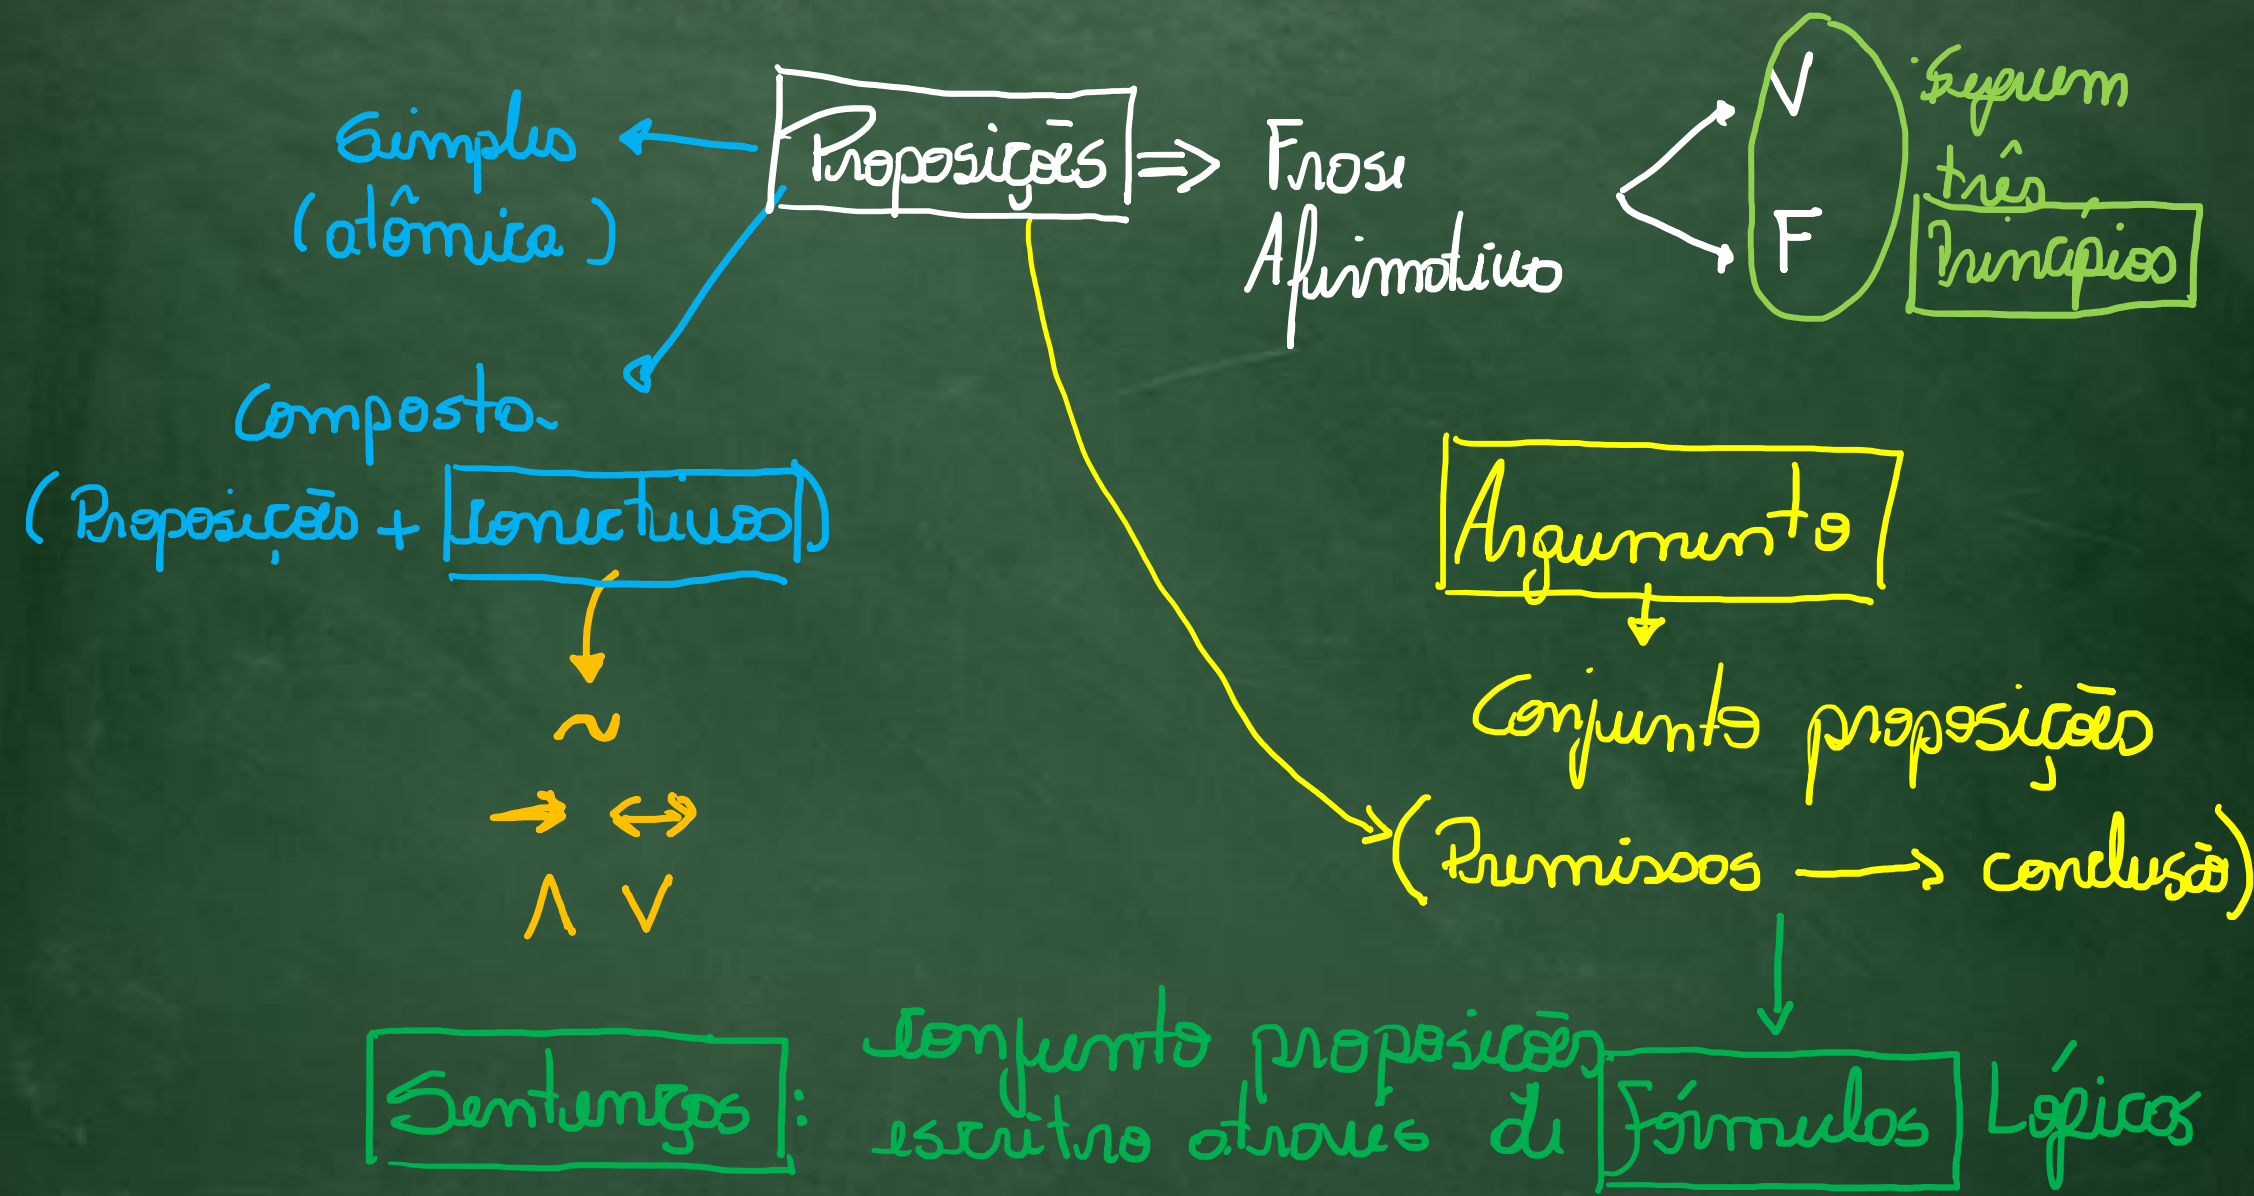 Simples
(atômica)
Proposições ⇒ Frase
Afirmativa
V
F
Seguem
três
Princípios
Composta
(Proposição + conectivos)
~
→ ↔
∧ ∨
Argumento
Conjunto proposições
(Premissas → conclusão)
Sentenças: conjunto proposições
escritro através de Fórmulas Lógicas